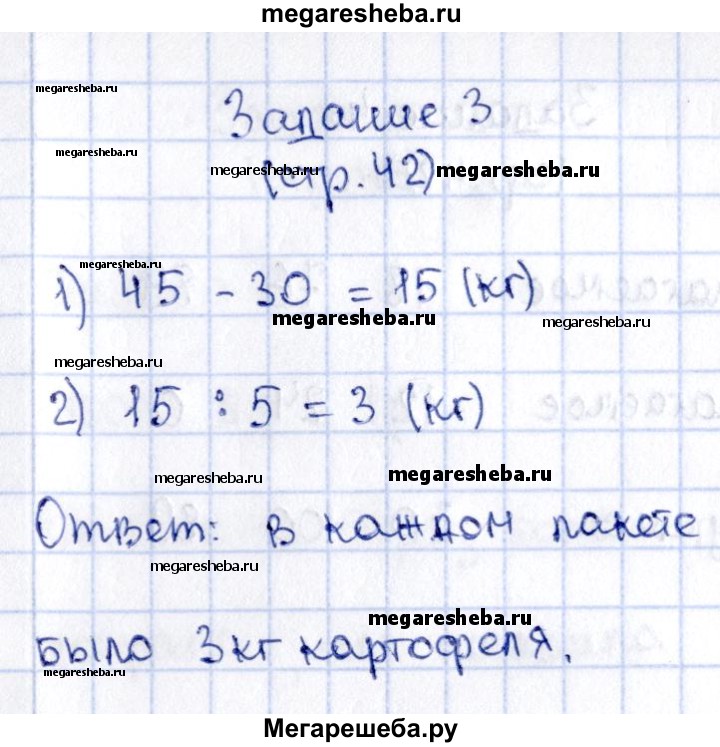 megaresheba.ru
megaresheba.ru
Задание 3
megaresheba.ru
(стр. 42)
megaresheba.ru
megaresheba.ru
megaresheba.ru
1) 45 - 30 = 15 (кг)
megaresheba.ru
megaresheba.ru
megaresheba.ru
2) 15 : 5 = 3 (кг)
megaresheba.ru
megaresheba.ru
Ответ: в каждом пакете
megaresheba.ru
megaresheba.ru
было 3 кг картофеля.
megaresheba.ru
Мегарешеба.ру